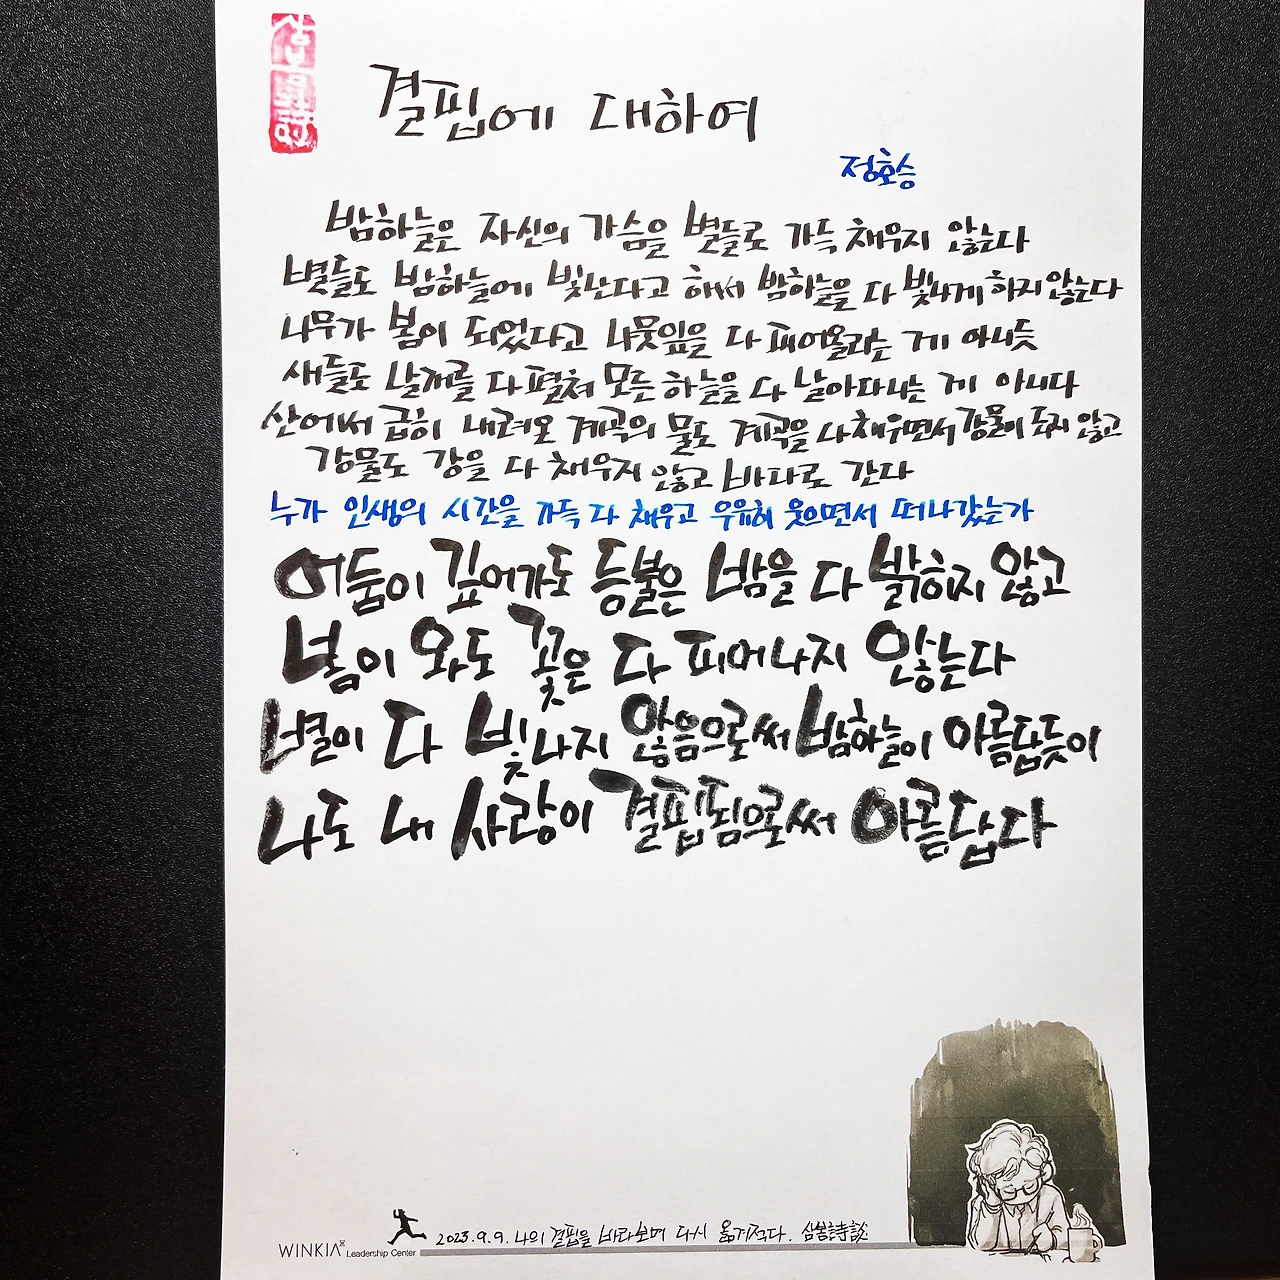 결핍에 대하여
정호승
밤하늘은 자신의 가슴을 별들로 가득 채우지 않는다
별들도 밤하늘에 빛난다고 해서 밤하늘을 다 빛나게 하지 않는다
나무가 봄이 되었다고 나뭇잎을 다 피어올리는 게 아니듯
새들도 날개를 다 펼쳐 모든 하늘을 다 날아다니는 게 아니다
산에서 급히 내려온 계곡의 물도 계곡을 다 채우면서 강물이 되지 않고
강물도 강을 다 채우지 않고 바다로 간다
누가 인생의 시간을 가득 다 채우고 유유히 웃으면서 떠나갔는가
어둠이 깊어가도 등불은 밤을 다 밝히지 않고
봄이 와도 꽃은 다 피어나지 않는다
별이 다 빛나지 않음으로써 밤하늘이 아름답듯이
나도 내 사랑이 결핍됨으로써 아름답다
2023.9.9. 나의 결핍을 바라보며 다시 옮겨적다. 삼봉詩談
WINKIA Leadership Center